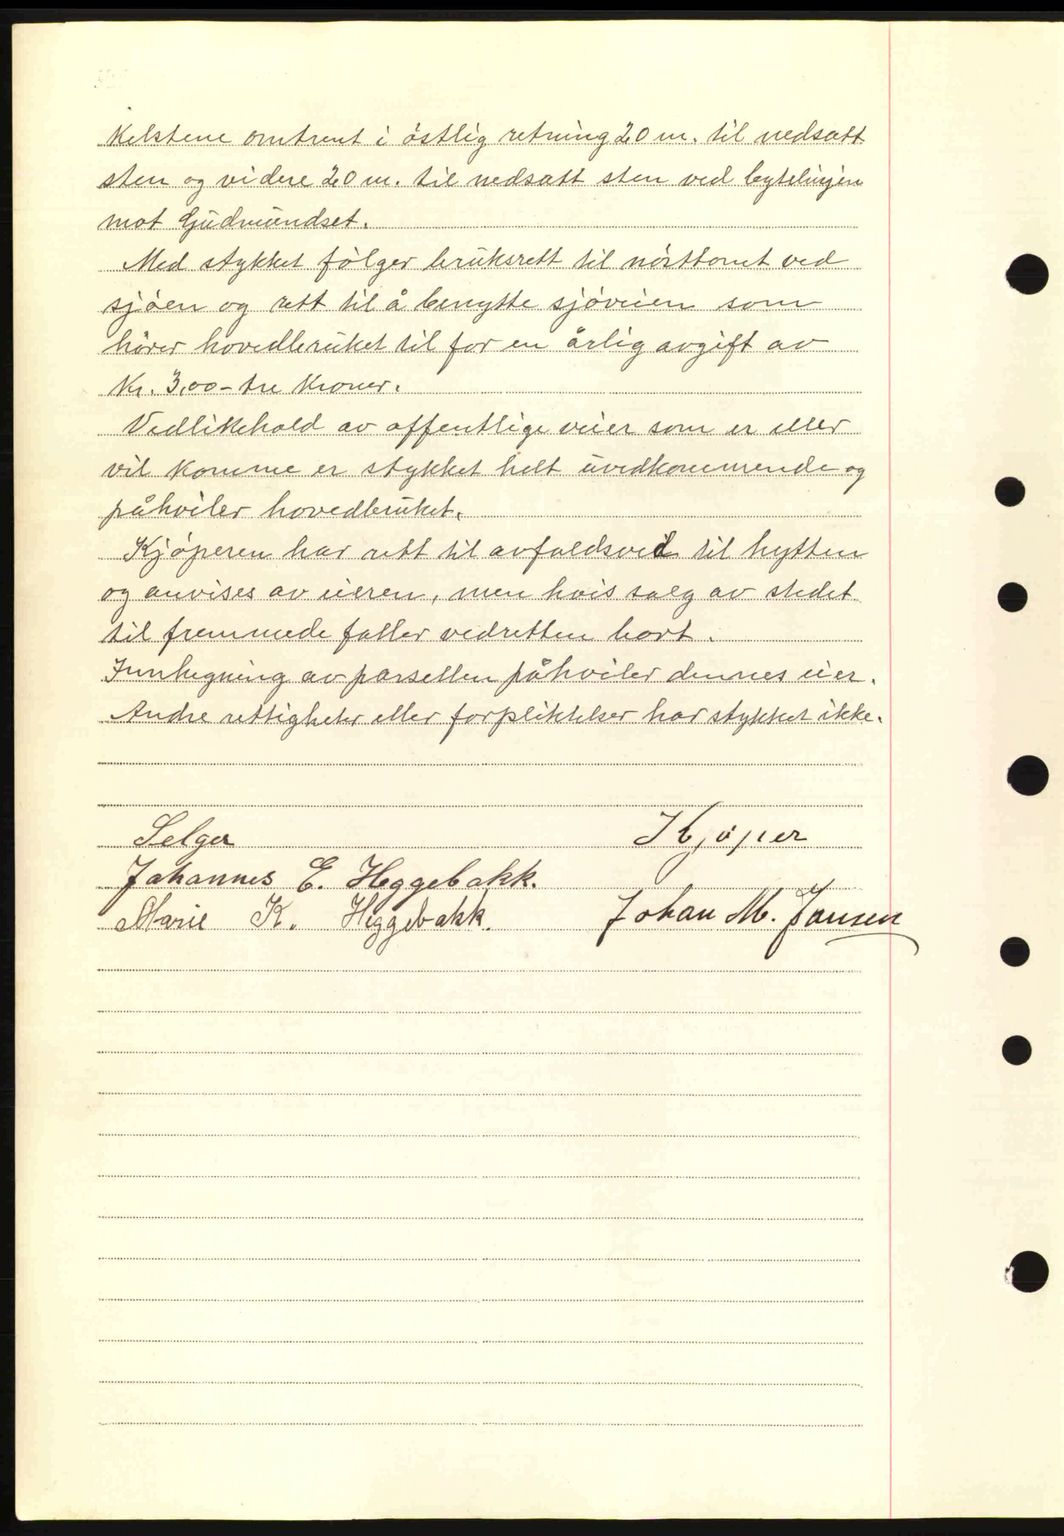 kelstene omtrent i östlig retning 20 m. til nedsatt
sten og videre 20 m. til nedsatt sten ved bytelinjen
mot Gudmundset.
Med stykket fölger bruksrett til nösttomt ved
sjöen og rett til å benytte sjöveien som
hörer hovedbruket til for en årlig avgift av
Kr. 3,00 - tre kroner.
Vedlikehold av offentlige veier som er eller
vil komme er stykket helt uvedkommende og
påhviler hovedbruket.
Kjöperen har rett til avfaldsved til hytten
og anvises av eieren, men hvis salg av stedet
til fremmede faller vedretten bort.
Innhegning av parsellen påhviler dennes eier.
Andre rettigheter eller forpliktelser har stykket ikke.
Selger Kjöper
Johannes E. Heggebakk.
Marie K. Heggebakk. Johan M. Jansen